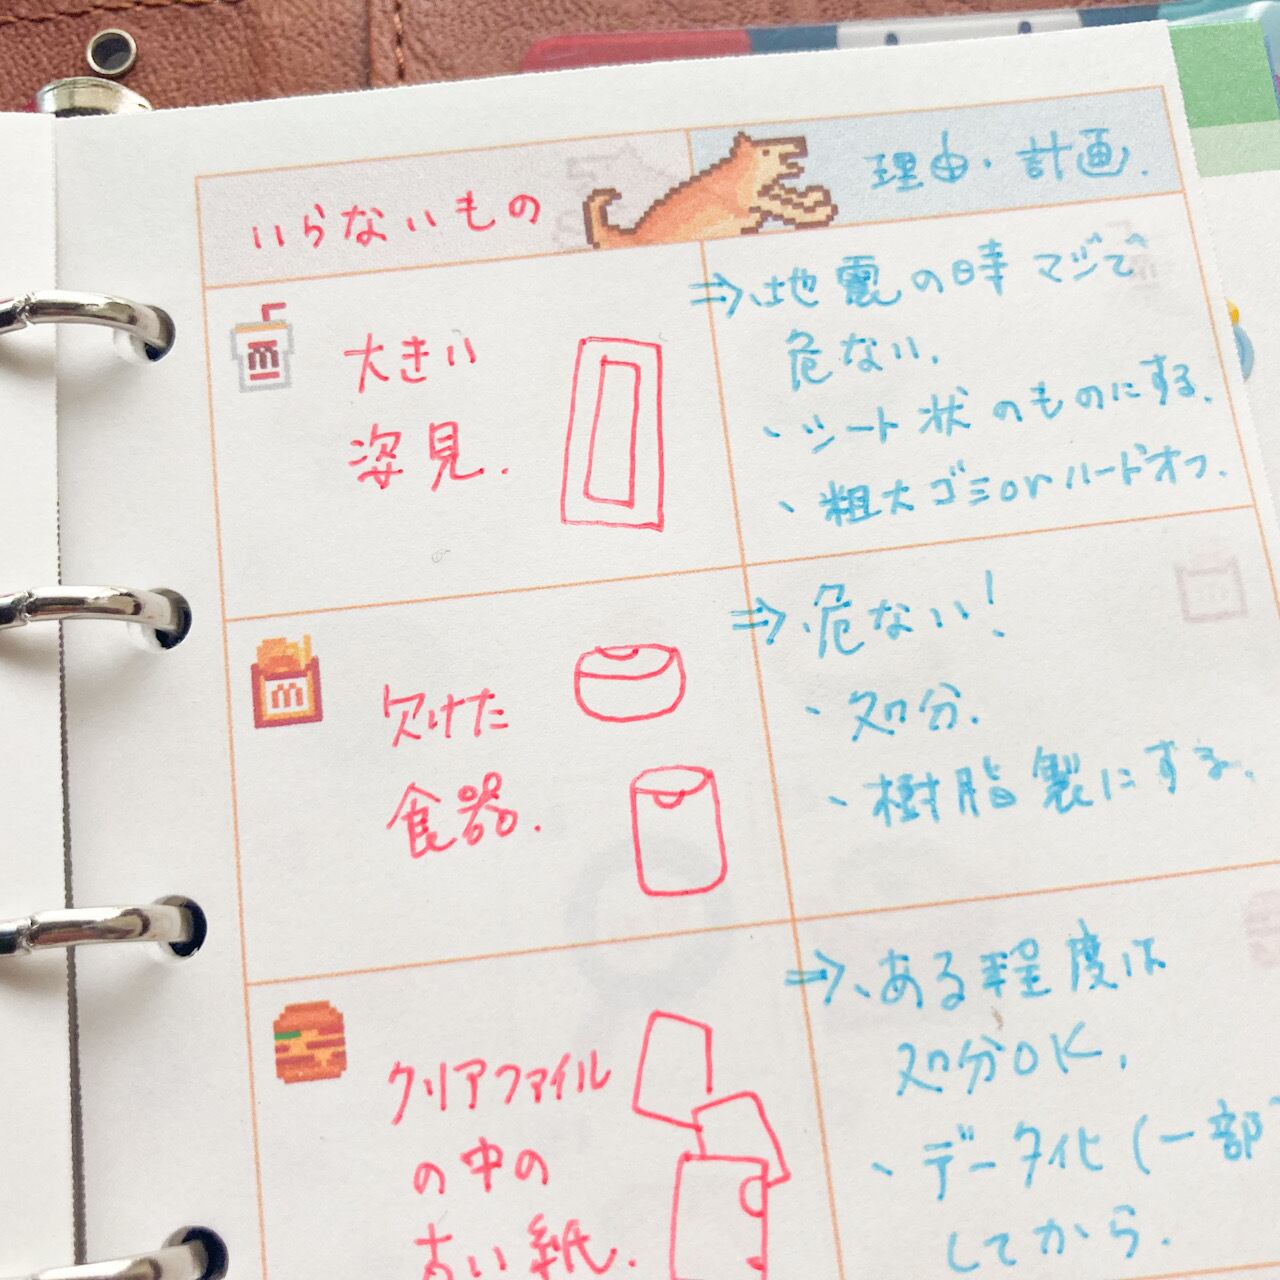 いらないもの
理由・計画.
大きい
姿見.
⇒・地震の時マジで
危ない.
・シート状のものにする.
・粗大ゴミorハードオフ.
欠けた
食器.
⇒・危ない!
・処分.
・樹脂製にする.
クリアファイル
の中の
古い紙.
⇒・ある程度は
処分OK.
・データ化(一部)
してから.